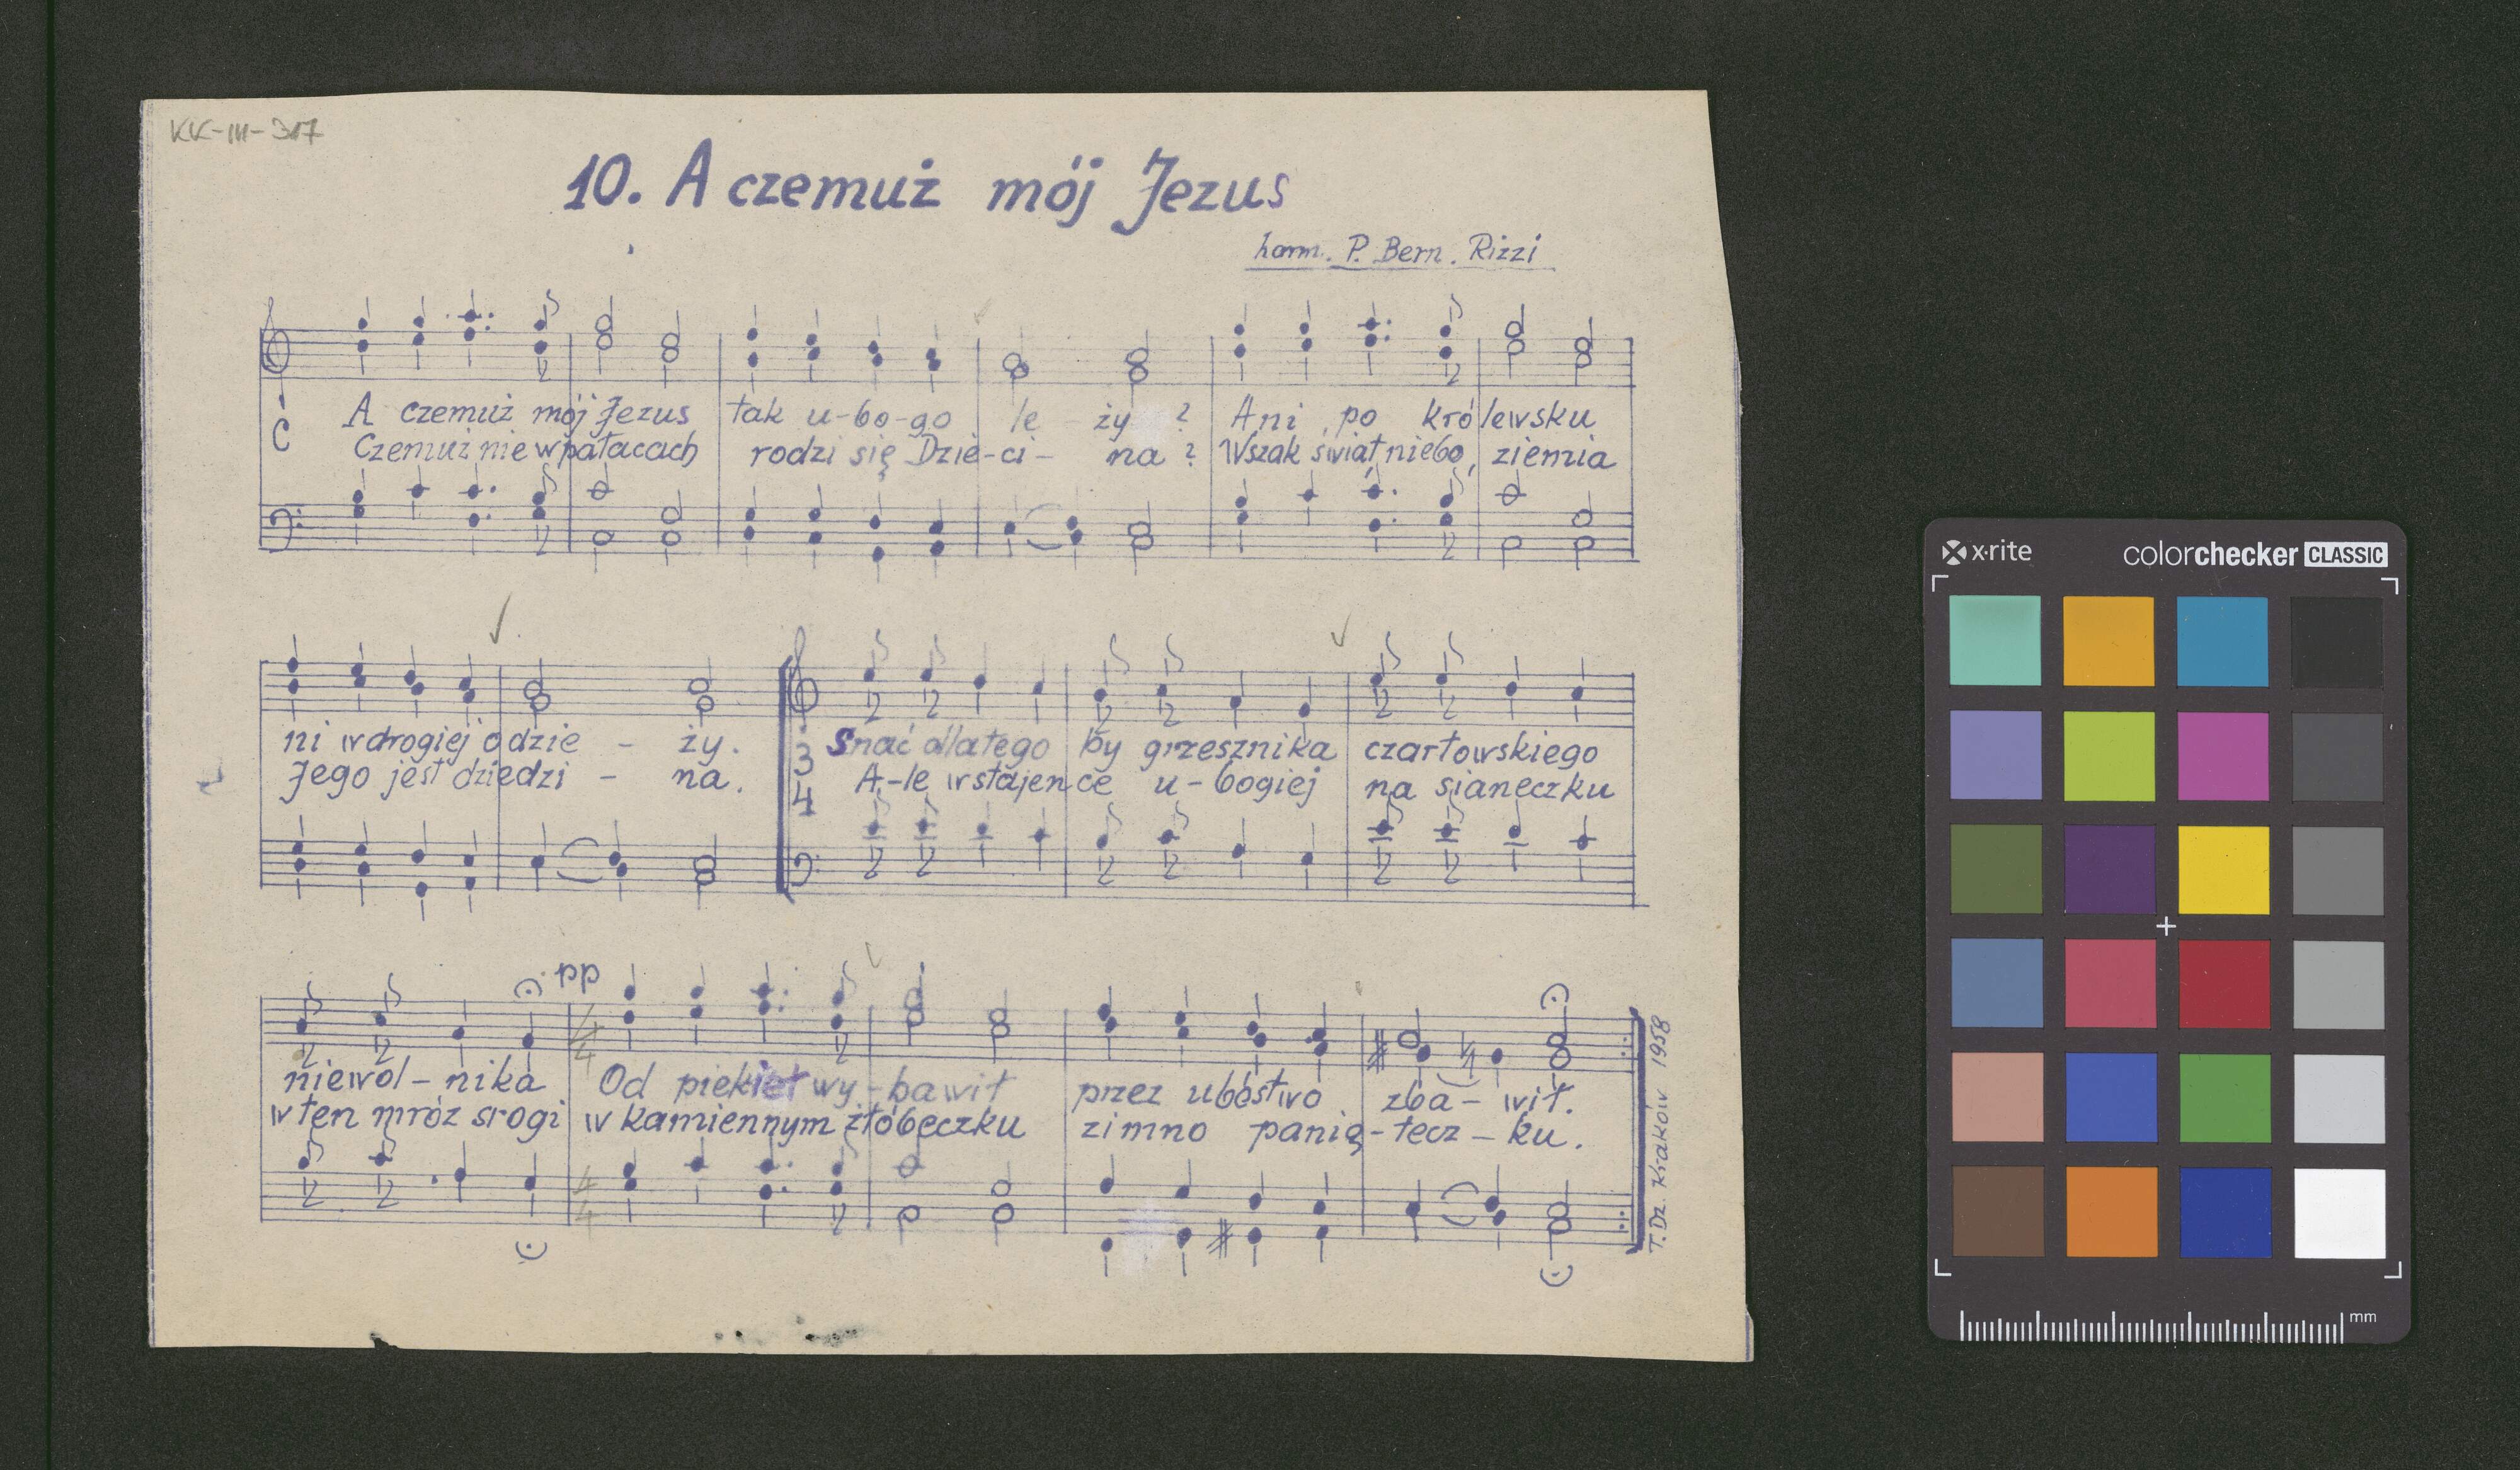 KK-III-317
10. A czemuż mój Jezus
harm. P. Bern. Rizzi
C
A czemuż mój Jezus tak u-bo-go le ży ? Ani po królewsku
Czemuż nie w pałacach rodzi się Dzie-ci- na? Wszak świat niebo, ziemia
ni w drogiej odzie - ży.
Jego jest dziedzi - na.
3
4
Snać dlatego by grzesznika czartowskiego
A-le w stajence u-bogiej na sianeczku
pp
4
4
niewol-nika Od piekieł wy-bawił przez ubóstwo zba-wił.
w ten mróz srogi w kamiennym żłóbeczku zimno panię-tecz-ku.
4
4
T. Dz. Kraków 1958
x·rite
colorchecker CLASSIC
mm